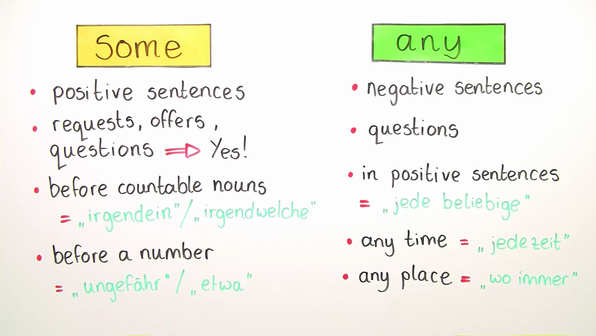 some
• positive sentences
• requests, offers,
questions ⇒ Yes!
• before countable nouns
= „irgendein"/„irgendwelche"
• before a number
= „ungefähr"/„etwa"
any
• negative sentences
• questions
• in positive sentences
= „jede beliebige"
• any time = „jedezeit"
• any place = „wo immer"